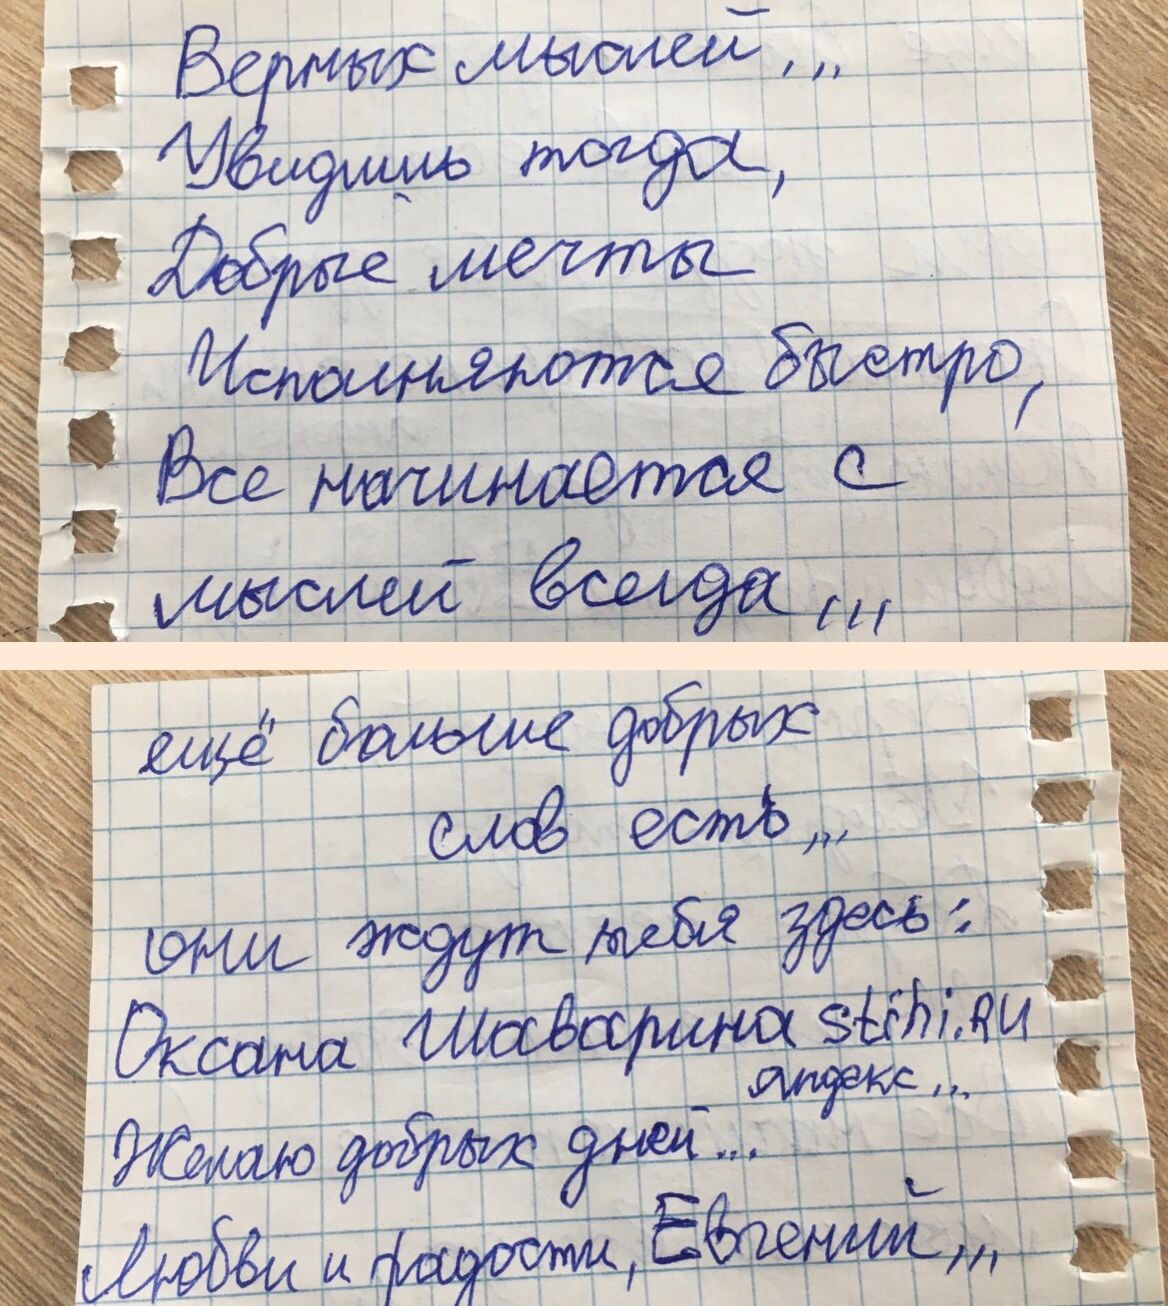 Верных мыслей,,,
Увидишь тогда,
Добрые мечты
Исполняются быстро,
Все начинается с
мыслей всегда,,,
ещё больше добрых
слов есть,,,
они ждут тебя здесь:
Оксана Шаварина stihi.RU
яндекс,,,
Желаю добрых дней...
Любви и радости, Евгений,,,